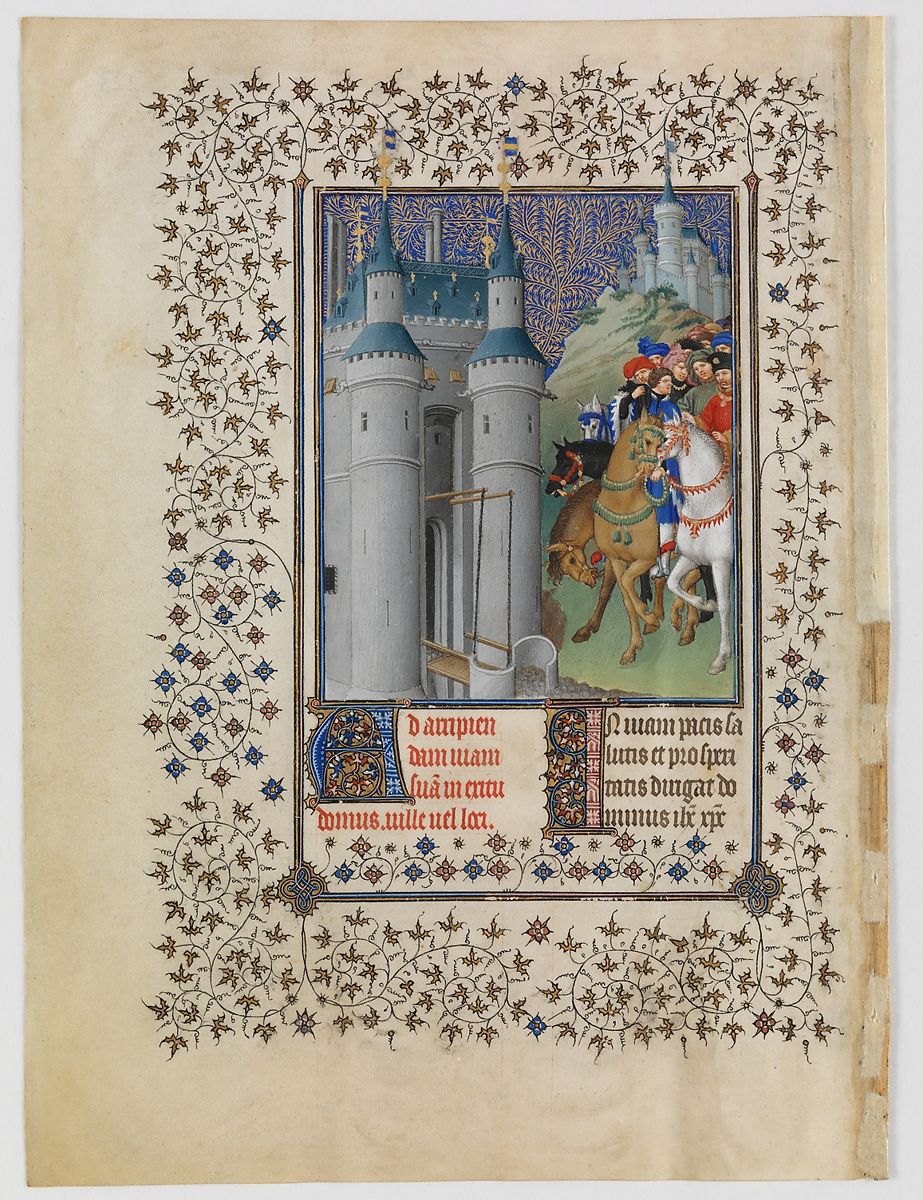 Ad arripien
dam uiam
suã in exitu
domus. uille uel loci.
IN uiam pacis sa
lutis et prosperi
tatis dirigat do
minus ih̄c xp̄c